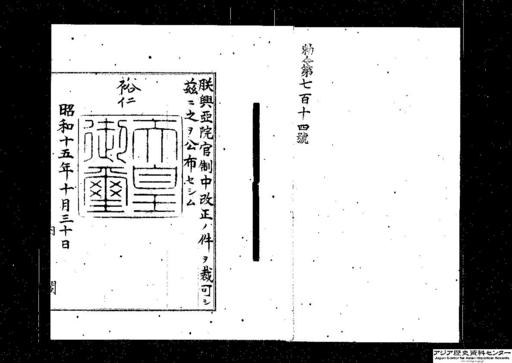 勅令第七百十四號
朕興亞院官制中改正ノ件ヲ裁可シ
茲ニ之ヲ公布セシム
裕仁
天皇
御璽
昭和十五年十月三十日
内閣
アジア歴史資料センター
Japan Center for Asian Historical Records